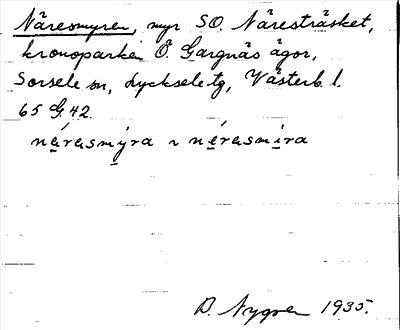 Näresmyren, myr SO. Näresträsket,
kronoparken Ö. Gargnäs ägor,
Sorsele sn, Lycksele tg, Västerb. l.
65 G 42.
nä́rasmýra ~ nę́rasmira
D. Nygren 1935.